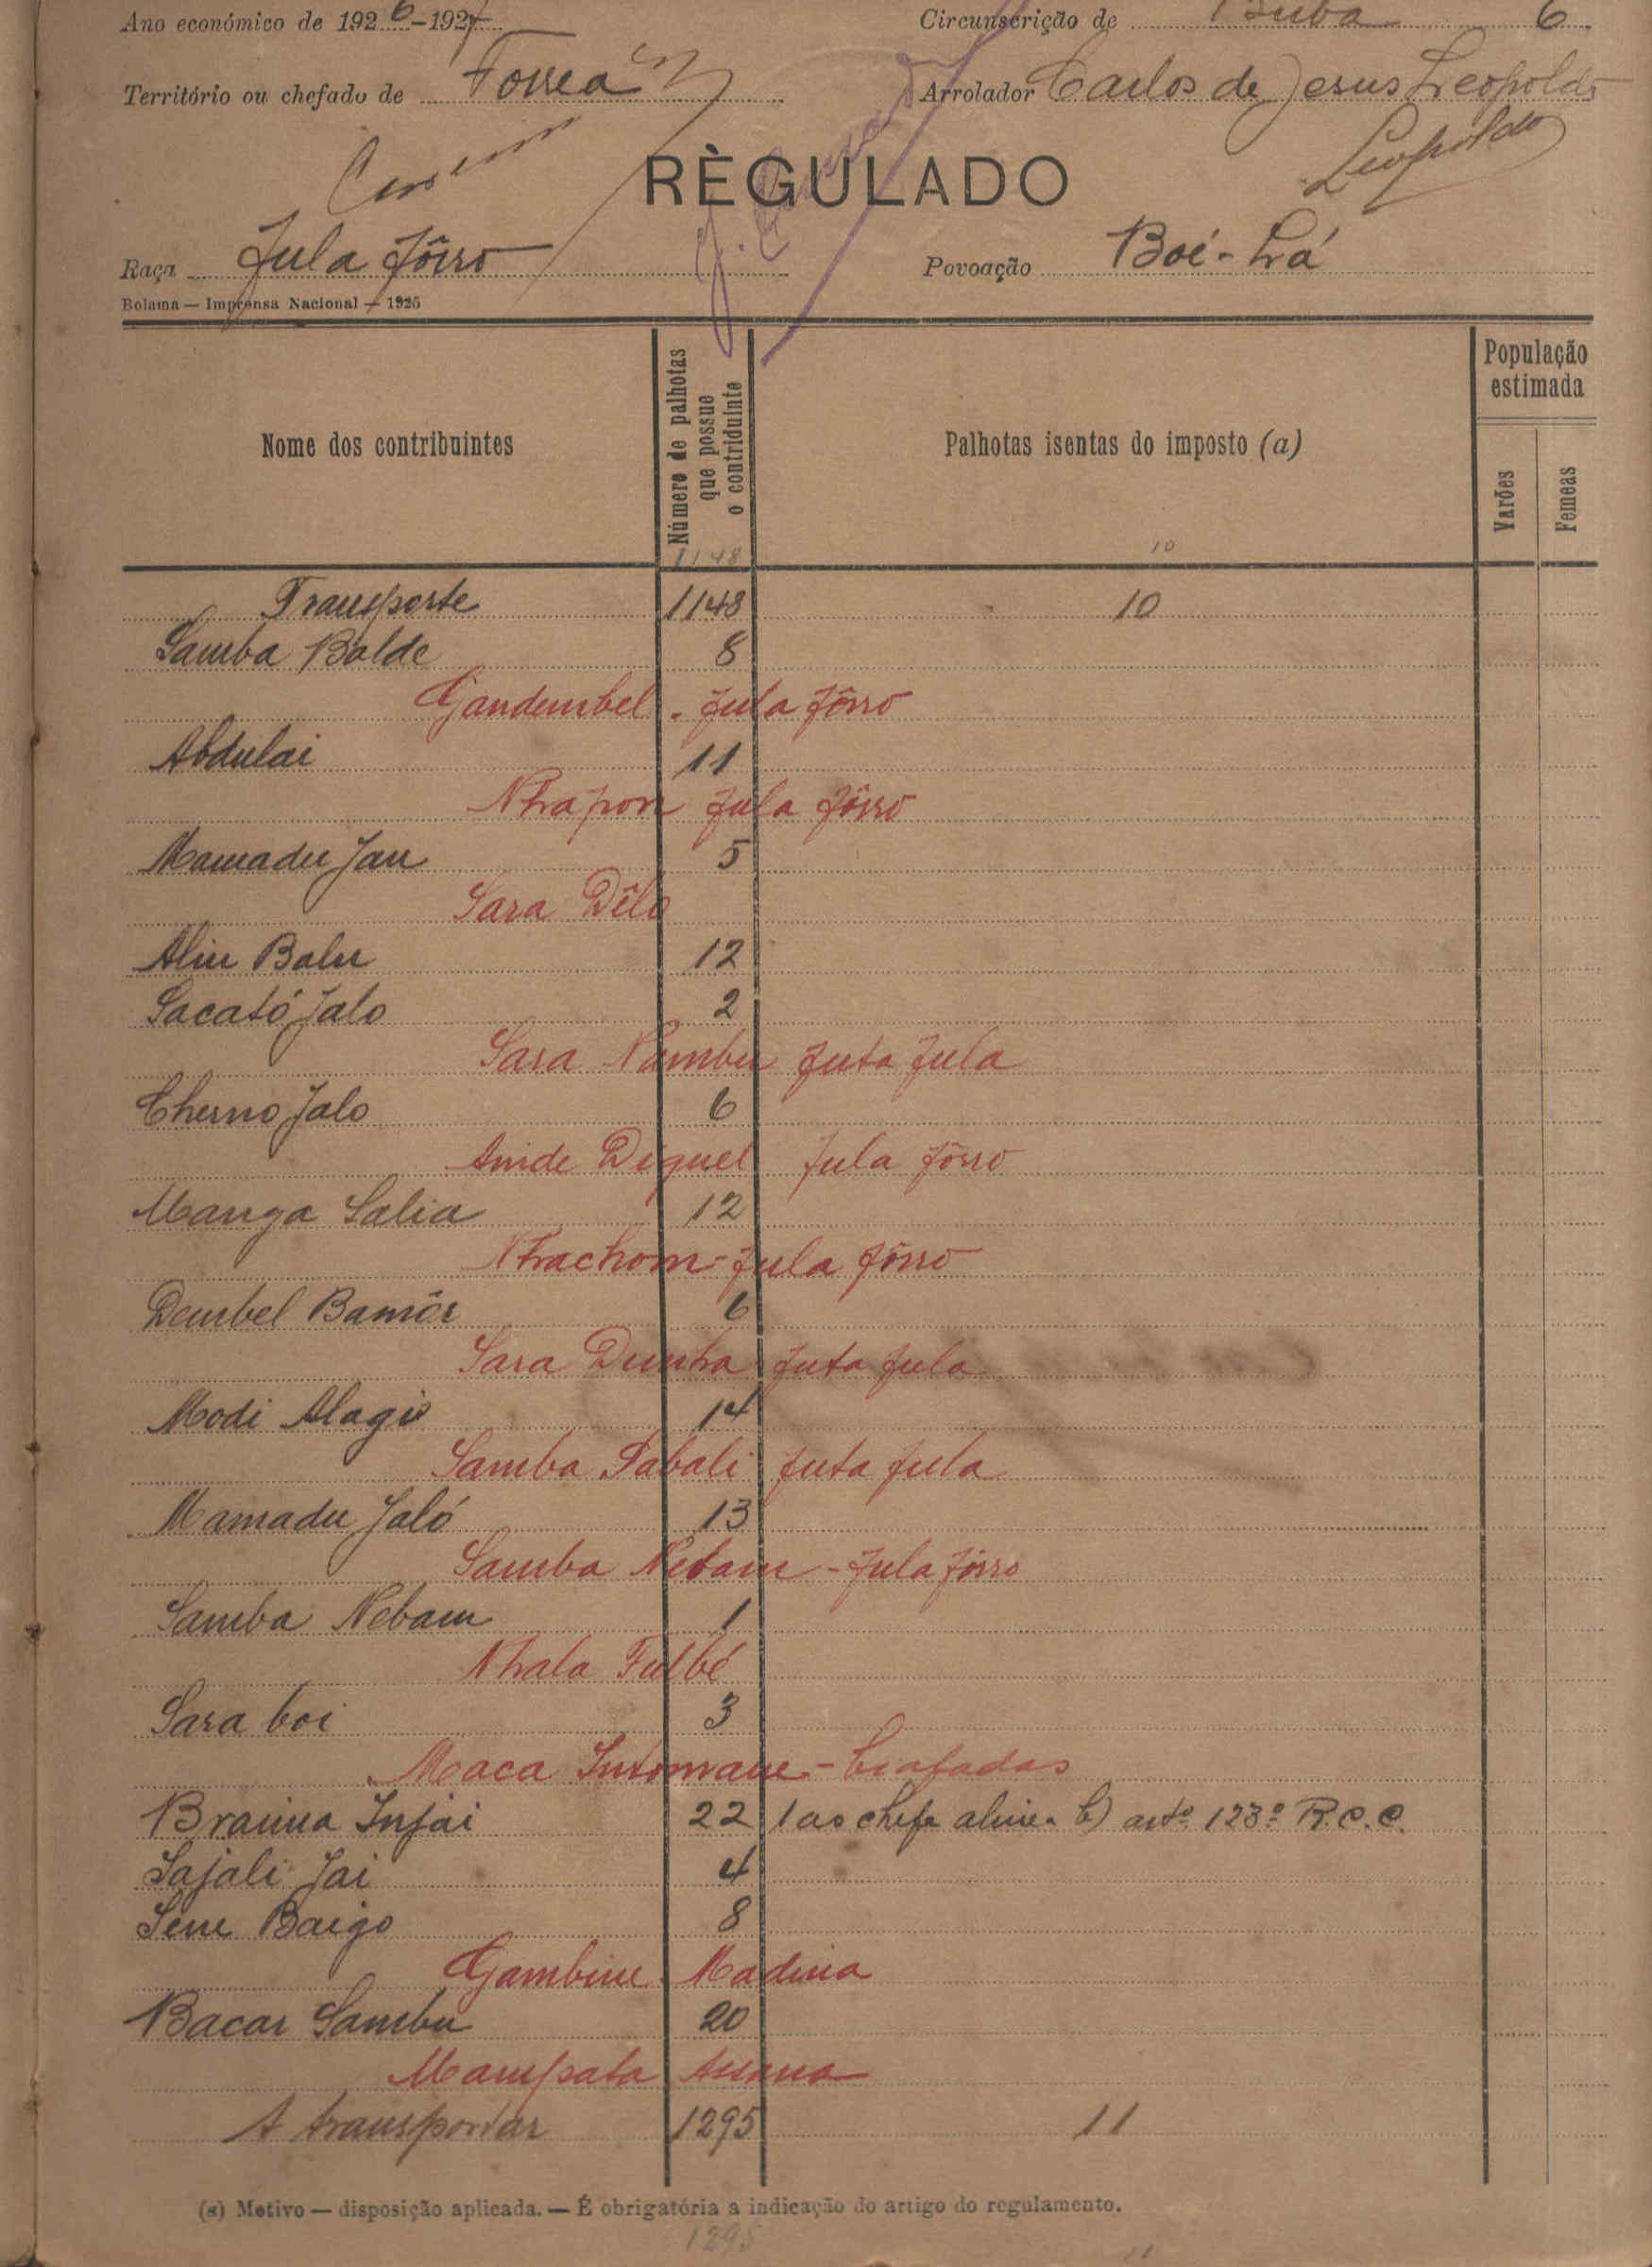 Ano económico de 1926-1927 Circunscrição de Buba 6
Território ou chefado de Forreá Arrolador Carlos de Jesus Leopoldo
Leopoldo
RÈGULADO
Raça Fula Fôrro Povoação Boé-Lrá
Bolama — Imprensa Nacional — 1925
Nome dos contribuintes
Número de palhotas
que possue
o contriduinte
Palhotas isentas do imposto (a)
População
estimada
Varões
Femeas
1148 10
Transporte 1148 10
Samba Balde 8
Gandembel - Fula Fôrro
Abdulai 11
Nhapon Fula Fôrro
Mamadu Jau 5
Sara Dêlo
Aliu Balu 12
Sacató Jalo 2
Sara Nambu Futa Fula
Cherno Jalo 6
Amide Diguel Fula Fôrro
Manga Salia 12
Nhachom - Fula Fôrro
Dembel Bamôr 6
Sara Dumha Futa Fula
Modi Alagi 14
Samba Sabali Futa Fula
Mamadu Jaló 13
Samba Nebam - Fula Fôrro
Samba Nebam 1
Nhala Fulbé
Sara boi 3
Maca - biafadas
Braima Injai 22 1 ao chefe aline. b) artº 123º R.C.C.
Sajali Jai 4
Sene Baigo 8
Gambine Madina
Bacar Sambu 20
Mampata Assana
A transportar 1295 11
(a) Motivo — disposição aplicada. — É obrigatória a indicação do artigo do regulamento.
1295
11